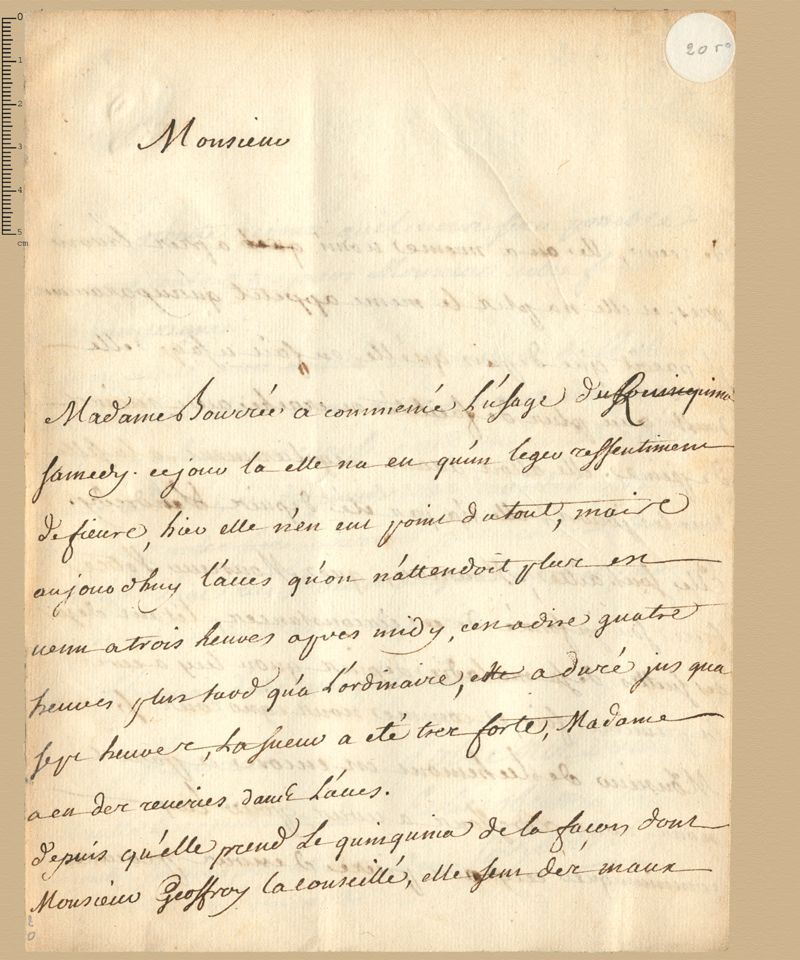 2050
Monsieur
Madame Bourrée a commencé L'usage du Quinquina
samedy. ce jour la elle na eu qu'un leger ressentiment
de fieure, hier elle n'en eut point du tout, mais
aujourdhuy l'acces qu'on n'attendoit plus est
uenu a trois heures apres midy, cest a dire quatre
heures plus tard qu'a L'ordinaire, elle a duré jus qua
sept heures, La sueur a eté tres forte, Madame
a eu des reueries dans L'acces.
depuis qu'elle prend Le quinquina de la façon dont
Monsieur Geoffroy la conseillé, elle sent des maux
0
1
2
3
4
5
cm